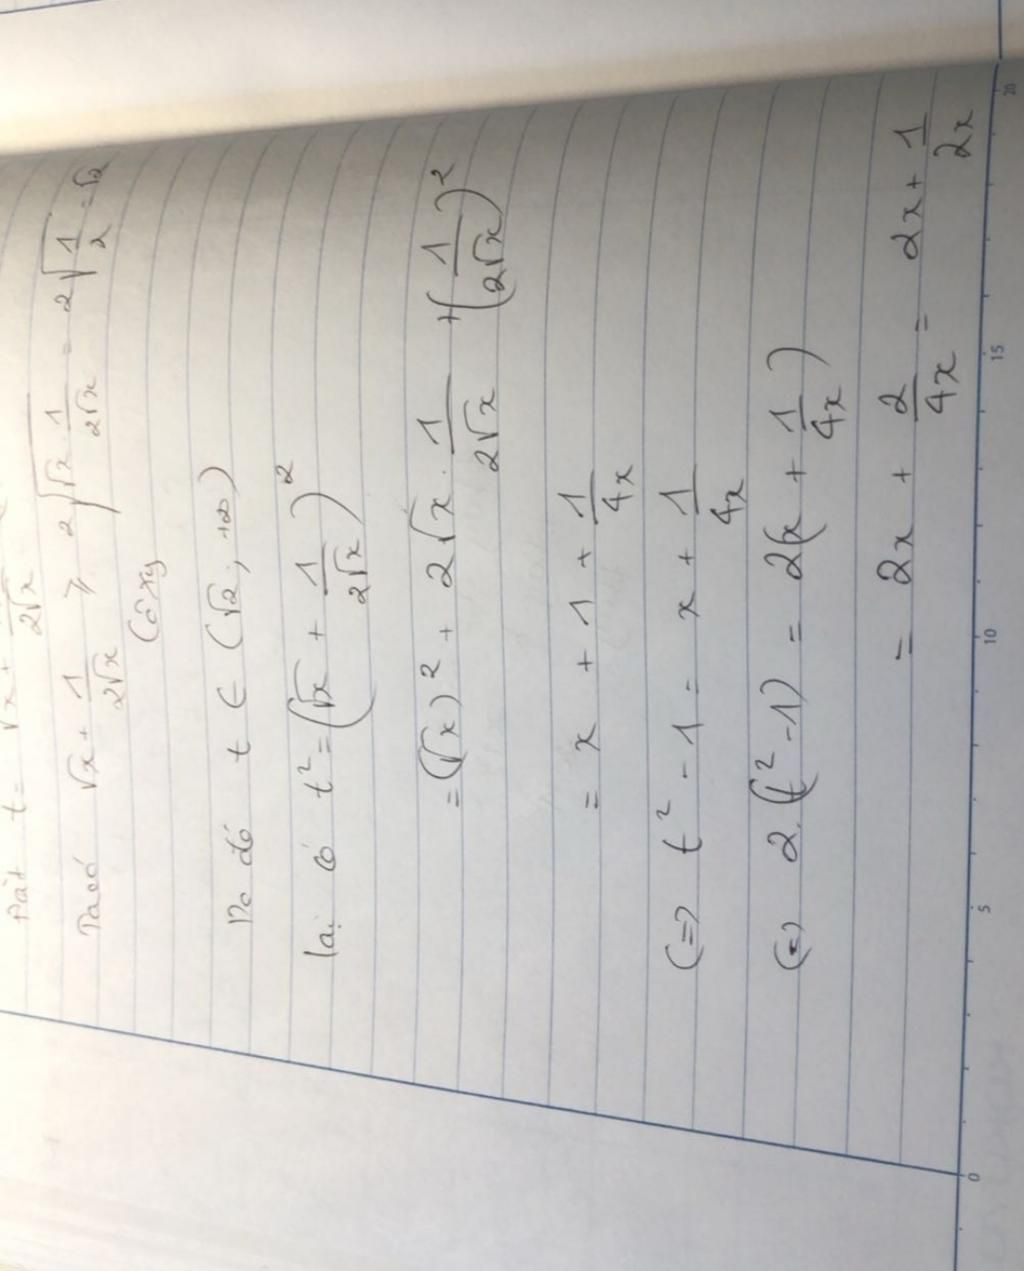 Đặt t = √x + 1/(2√x)
Ta có √x + 1/(2√x) ⩾ 2√(√x · 1/(2√x)) = 2√(1/2) = √2
(Côxy
Do đó t ∈ (√2; +∞)
lại có t² = (√x + 1/(2√x))²
= (√x)² + 2√x · 1/(2√x) + (1/(2√x))²
= x + 1 + 1/(4x)
(=) t² - 1 = x + 1/(4x)
(=) 2.(t² - 1) = 2(x + 1/(4x))
= 2x + 2/(4x) = 2x + 1/(2x)
0 5 10 15 20